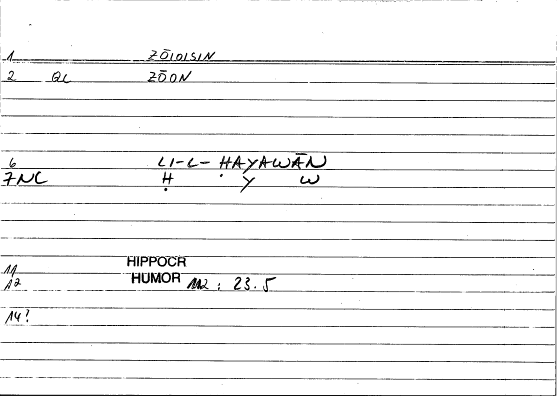 1 ZŌIOISIN
2 QL ZŌON
6 LI-L-ḤAYAWĀN
7NC Ḥ Y W
11 HIPPOCR
12 HUMOR 112 : 23.5
14?